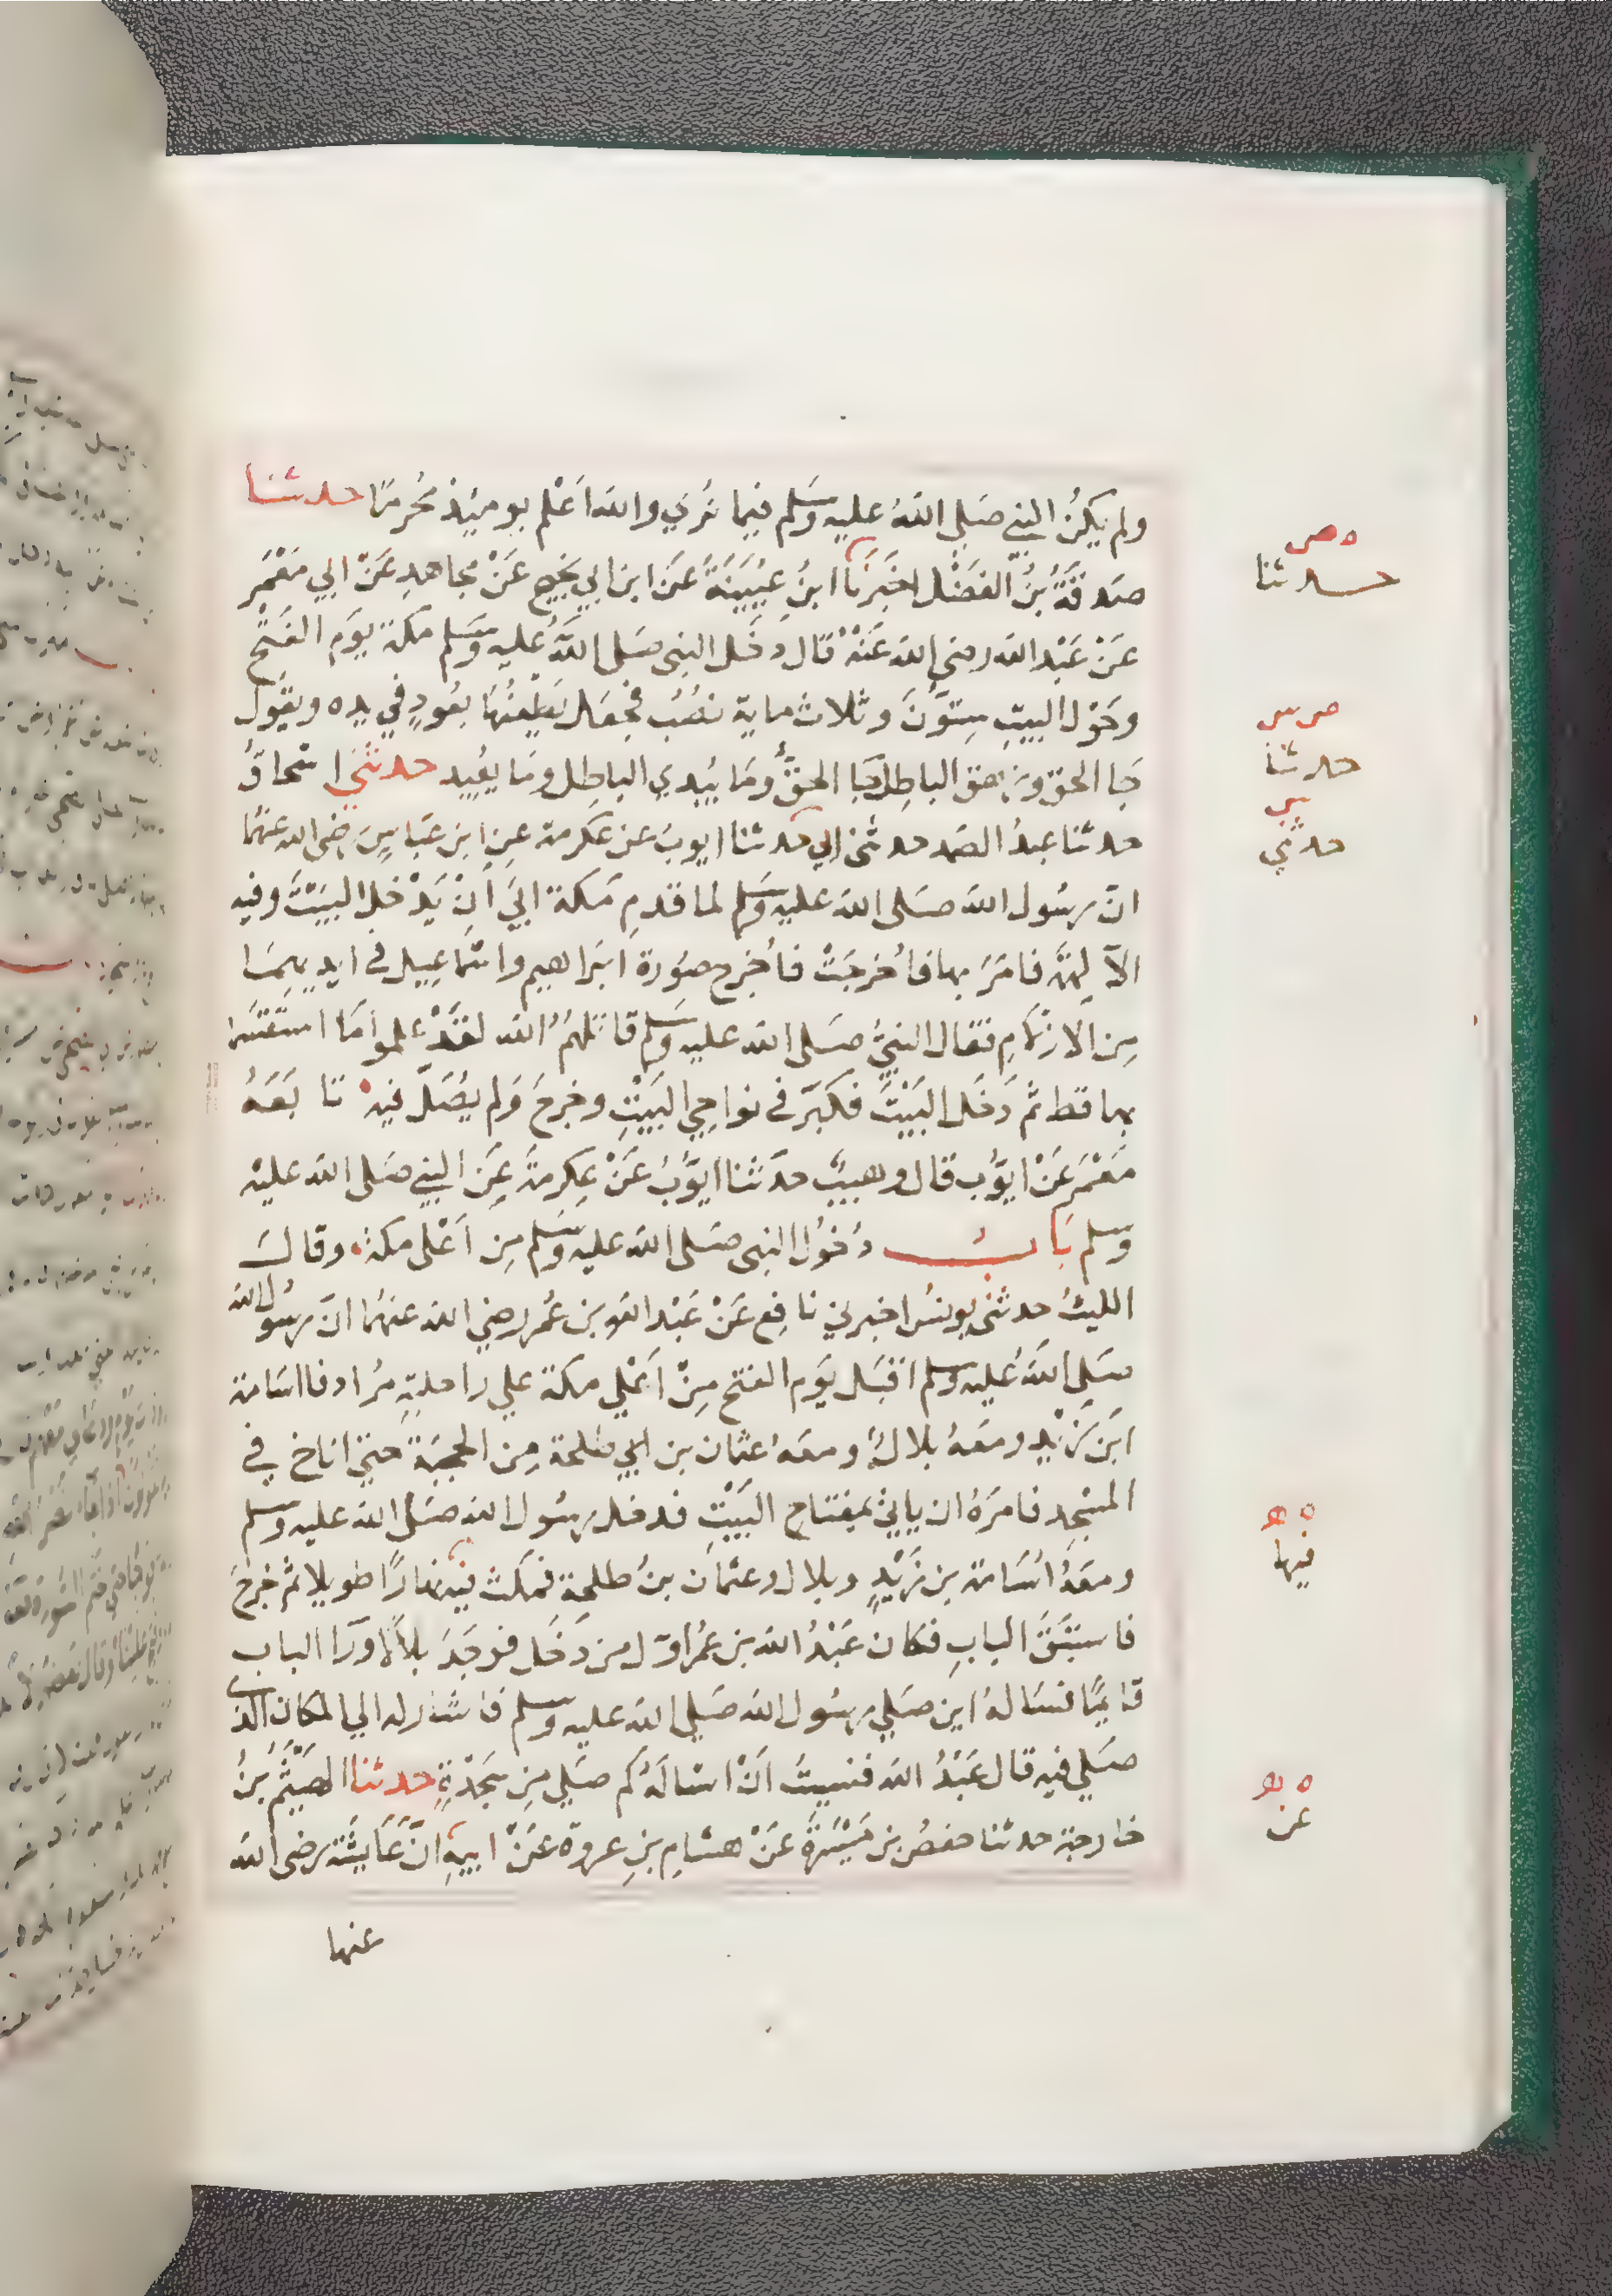 ولم يكُن النبي صَلى اللهُ عليه وسَلم فيما نُري والله اَعْلم يوميذٍ مُحرِمًا حدثنا
صَدقَةُ بنُ الفَضْل اخبَرنَا ابنُ عُيَيْنَةَ عَن ابن ابي نجيح عَنْ مجاهدٍ عَنْ ابي مَعْمَر
عَنْ عَبْد الله رضي الله عَنْهُ قال دَخَل النبي صَلى اللهُ عليه وسَلم مكة يَوم الفَتْح
وحَوْل البيتِ سِتوُّنَ وثلاث ماية نصُبُ فجعَل يَطْعُنُهَا بعُودٍ في يده ويقُول
جَا الحق وزهق الباطِل جَا الحَقُّ ومَا يُبدي الباطِل ومَا يعُيِد حدثني اسْحاقُ
حدثنا عبدُ الصَمد حدثنى ابي حدثنا ايوبُ عن عكرمة عن ابن عَباسٍ رَضى الله عنهُمَا
انّ رسُول الله صَلى الله عليه وسَلم لما قدمِ مَكة ابَي اَنْ يَدْخل البَيْتَ وفيه
الآلِهةُ فامَرَ بها فاُخرِجَتْ فاُخرج صوُرة ابَراهيم واسْماعِيل فى ايديهمَا
مِن الازْلامِ فقال النبيُّ صَلى الله عليه وسَلم قاتَلهُمُ الله لقَدْ علموا مَا استَقْسَما
بها قط ثم دَخَل البَيْتَ فكبَّر فى نواحِي البَيْتِ وخرجَ وَلم يصُلّ فيه تابَعَهُ
مَعْمَر عَنْ ايوُّب قال وهيبُ حدَثنا ايوُّبُ عَنْ عِكرمةَ عَن النبي صَلى الله عليْه
وسلم بَابُ دخُولُ النبى صَلى الله عليه وسَلم مِن اَعْلى مكة وقالَ
الليثُ حدثنى يونسُ اخبرني نافِع عَنْ عَبْد الله بن عُمر رضي الله عنهُمَا انّ رسُول الله
صَلى اللهُ عليه وسلم اقبَل يَوم الفتح مِنْ اَعْلي مكة علي راحلتِهِ مُرادفا اسَامة
ابَن زَيْدٍ ومعَهُ بلالُ ومعَهُ عثمان بن ابي طَلحة مِن الحجَبَة حتي اناخ في
المسْجِد فامرَهُ ان ياتيَ بمفتاح البَيْتِ فدخل رسُول الله صَلى الله عليه وسلم
ومعَهُ اسَامة بن زَيْدٍ وبلال وعثمان بنُ طلحة فمكث فيه نهارًا طويلا ثم خرجَ
فاستبَقَ الناس فكان عَبْدُ الله بن عمُر اوّل من دَخَل فوجَدَ بلاَلا ورَا الباب
قايمًا فسَالهُ اين صَلي رسُول الله صَلي الله عليه وسلم فاشار له الي المكان الذي
صَلي فيه قال عَبْدُ الله فنسيتُ اَنْ اسْالهُ كم صَلي مِن سَجْدةٍ حدثنا الهيْثَم بنُ
خارجة حدثنا حفصُ بن مَيْسَرةَ عَنْ هشامِ بنِ عروة عَنْ ابيهِ انّ عَايشَة رضى الله
عنها
ه ص
حدثنا
ص س
حدثنا
حدثني
ه
فيها
ه
عن